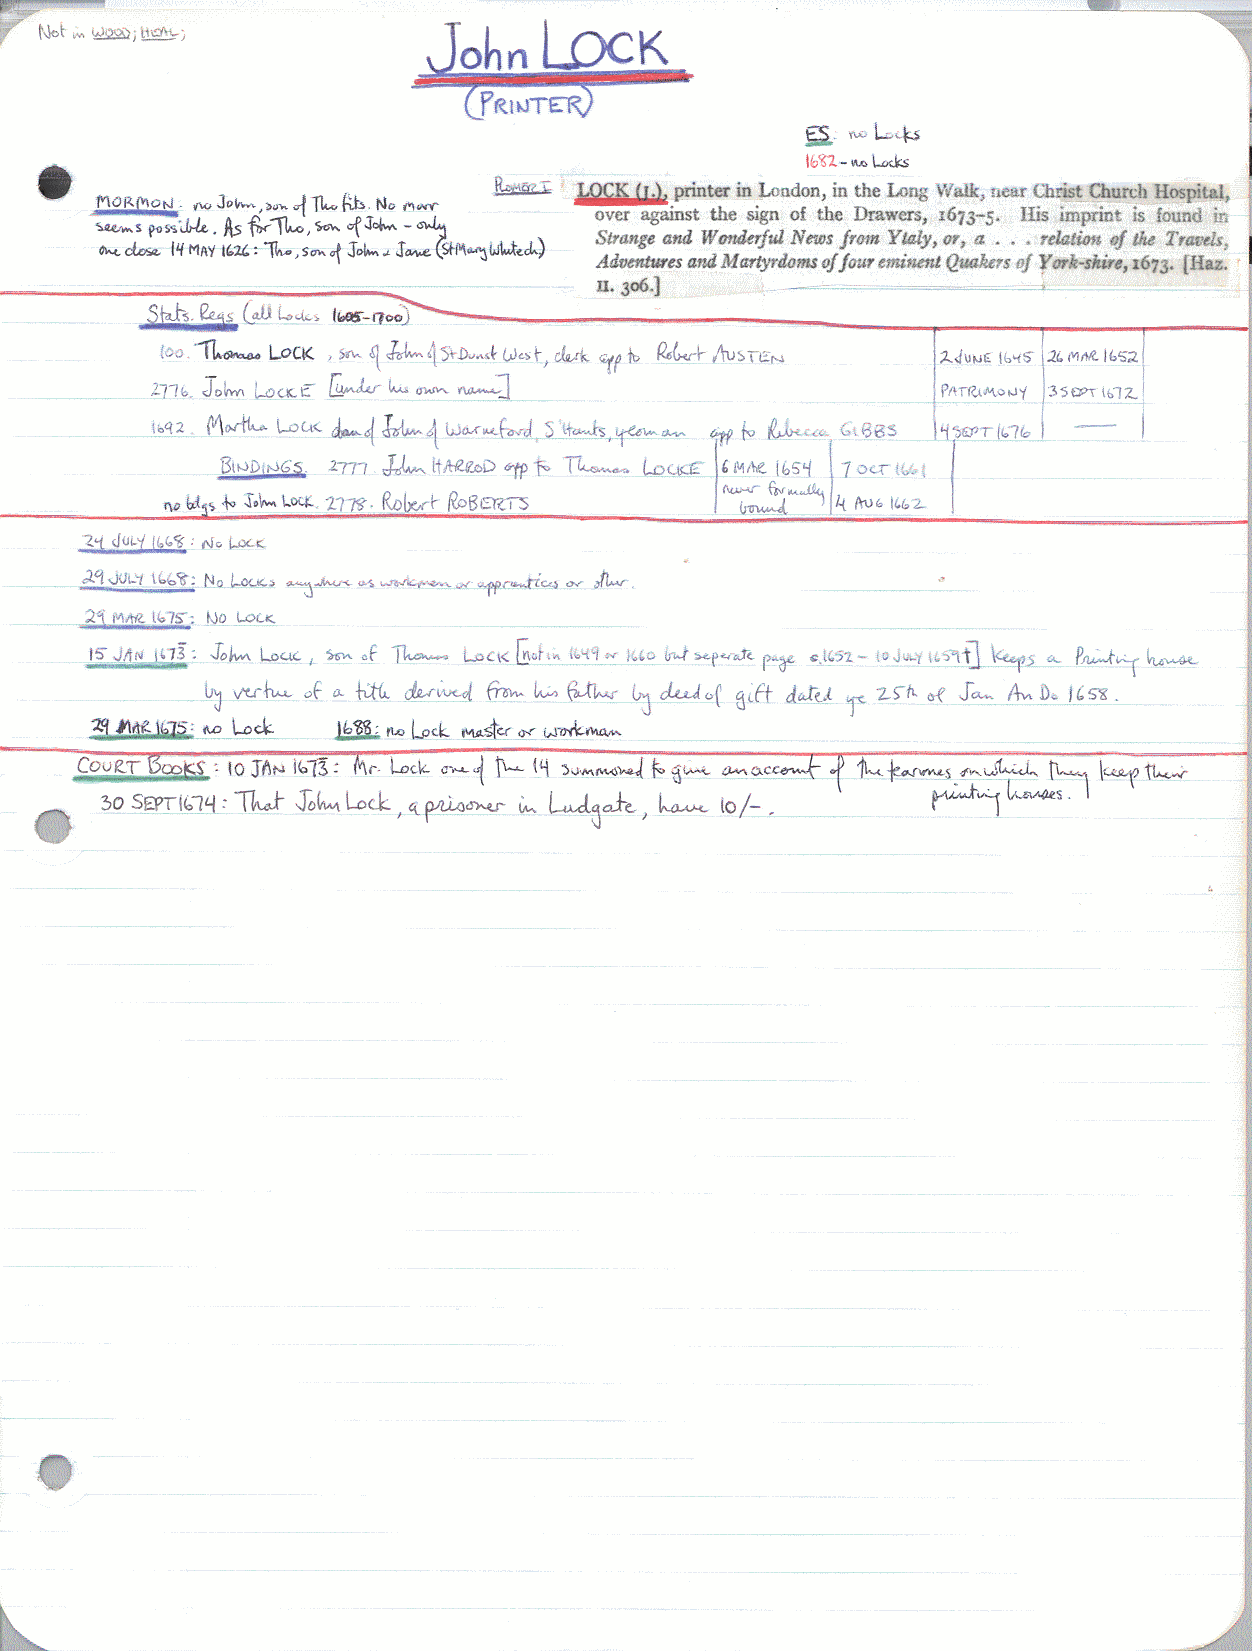 Not in WOOD; HEAL;
John LOCK
(PRINTER)
ES: no Locks
1682 - no Locks
PLOMER I
LOCK (J.), printer in London, in the Long Walk, near Christ Church Hospital,
over against the sign of the Drawers, 1673-5. His imprint is found in
Strange and Wonderful News from Ytaly, or, a . . . relation of the Travels,
Adventures and Martyrdoms of four eminent Quakers of York-shire, 1673. [Haz.
II. 306.]
MORMON: no John, son of Tho fits. No marr
seems possible. As for Tho, son of John - only
one close 14 MAY 1626: Tho, son of John & Jane (St Mary Whitech)
Stats. Regs (all Locks 1605-1700)
100. Thomas LOCK, son of John of St Dunst West, clerk app to Robert AUSTEN 2 JUNE 1645 26 MAR 1652
2776. John LOCKE [under his own name] PATRIMONY 3 SEPT 1672
1692. Martha LOCK dau of John of Warneford, S'Hants, yeoman app to Rebecca GIBBS 4 SEPT 1676 —
BINDINGS. 2777. John HARROD app to Thomas LOCKE 6 MAR 1654 7 OCT 1661
no bdgs to John LOCK. 2778. Robert ROBERTS never formally bound 4 AUG 1662
24 JULY 1668: No LOCK
29 JULY 1668: No Locks anywhere as workmen or apprentices or other.
29 MAR 1675: NO LOCK
15 JAN 1673: John Lock, son of Thomas LOCK [not in 1649 or 1660 but seperate page c.1652 - 10 July 1659†] Keeps a Printing house
by vertue of a title derived from his father by deed of gift dated ye 25th of Jan An Do 1658.
29 MAR 1675: no Lock 1688: no Lock master or workman
COURT BOOKS: 10 JAN 1673: Mr. Lock one of the 14 summoned to give an account of the tearmes on which they keep their
printing houses.
30 SEPT 1674: That John Lock, a prisoner in Ludgate, have 10/-.